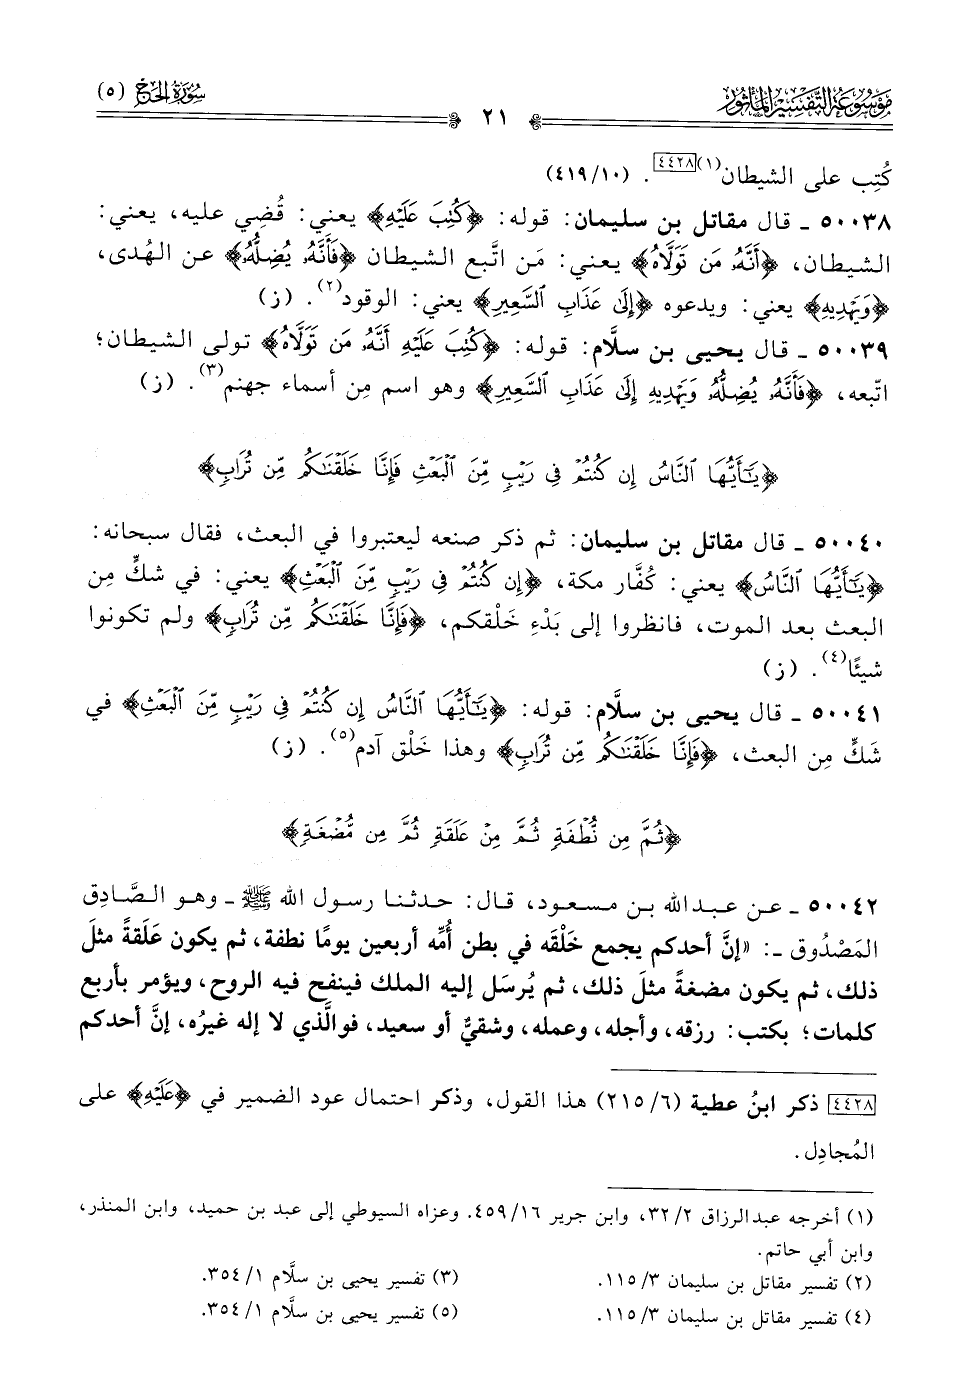 موسوعة التفسير المأثور
٢١
سورة الحج (٥)
كُتب على الشيطان(١)[٤٤٢٨]. (٤١٩/١٠)
٥٠٠٣٨ ـ قال مقاتل بن سليمان: قوله: ﴿كُتِبَ عَلَيْهِ﴾ يعني: قُضِي عليه، يعني:
الشيطان، ﴿أَنَّهُۥ مَن تَوَلَّاهُ﴾ يعني: مَن اتَّبع الشيطان ﴿فَأَنَّهُۥ يُضِلُّهُۥ﴾ عن الهُدى،
﴿وَيَهْدِيهِ﴾ يعني: ويدعوه ﴿إِلَىٰ عَذَابِ ٱلسَّعِيرِ﴾ يعني: الوقود(٢). (ز)
٥٠٠٣٩ ـ قال يحيى بن سلَّام: قوله: ﴿كُتِبَ عَلَيْهِ أَنَّهُۥ مَن تَوَلَّاهُ﴾ تولى الشيطان؛
اتّبعه، ﴿فَأَنَّهُۥ يُضِلُّهُۥ وَيَهْدِيهِ إِلَىٰ عَذَابِ ٱلسَّعِيرِ﴾ وهو اسم مِن أسماء جهنم(٣). (ز)
﴿يَٰٓأَيُّهَا ٱلنَّاسُ إِن كُنتُمْ فِى رَيْبٍ مِّنَ ٱلْبَعْثِ فَإِنَّا خَلَقْنَٰكُم مِّن تُرَابٍ﴾
٥٠٠٤٠ ـ قال مقاتل بن سليمان: ثم ذكر صنعه ليعتبروا في البعث، فقال سبحانه:
﴿يَٰٓأَيُّهَا ٱلنَّاسُ﴾ يعني: كُفَّار مكة، ﴿إِن كُنتُمْ فِى رَيْبٍ مِّنَ ٱلْبَعْثِ﴾ يعني: في شكٍّ مِن
البعث بعد الموت، فانظروا إلى بَدْءِ خَلْقكم، ﴿فَإِنَّا خَلَقْنَٰكُم مِّن تُرَابٍ﴾ ولم تكونوا
شيئًا(٤). (ز)
٥٠٠٤١ ـ قال يحيى بن سلَّام: قوله: ﴿يَٰٓأَيُّهَا ٱلنَّاسُ إِن كُنتُمْ فِى رَيْبٍ مِّنَ ٱلْبَعْثِ﴾ في
شكٍّ مِن البعث، ﴿فَإِنَّا خَلَقْنَٰكُم مِّن تُرَابٍ﴾ وهذا خَلْق آدم(٥). (ز)
﴿ثُمَّ مِن نُّطْفَةٍ ثُمَّ مِنْ عَلَقَةٍ ثُمَّ مِن مُّضْغَةٍ﴾
٥٠٠٤٢ ـ عن عبدالله بن مسعود، قال: حدثنا رسول الله ﷺ ـ وهو الصَّادِق
المَصْدُوق ـ: «إنَّ أحدكم يجمع خَلْقَه في بطن أُمِّه أربعين يومًا نطفة، ثم يكون عَلَقةً مثلَ
ذلك، ثم يكون مضغةً مثلَ ذلك، ثم يُرسَل إليه الملك فينفخ فيه الروح، ويؤمر بأربع
كلمات؛ بكتب: رزقه، وأجله، وعمله، وشقيٌّ أو سعيد، فوالَّذي لا إله غيرُه، إنَّ أحدكم
[٤٤٢٨] ذكر ابنُ عطية (٢١٥/٦) هذا القول، وذكر احتمال عود الضمير في ﴿عَلَيْهِ﴾ على
المُجادِل.
(١) أخرجه عبدالرزاق ٣٢/٢، وابن جرير ٤٥٩/١٦. وعزاه السيوطي إلى عبد بن حميد، وابن المنذر،
وابن أبي حاتم.
(٢) تفسير مقاتل بن سليمان ١١٥/٣.
(٣) تفسير يحيى بن سلَّام ٣٥٤/١.
(٤) تفسير مقاتل بن سليمان ١١٥/٣.
(٥) تفسير يحيى بن سلَّام ٣٥٤/١.